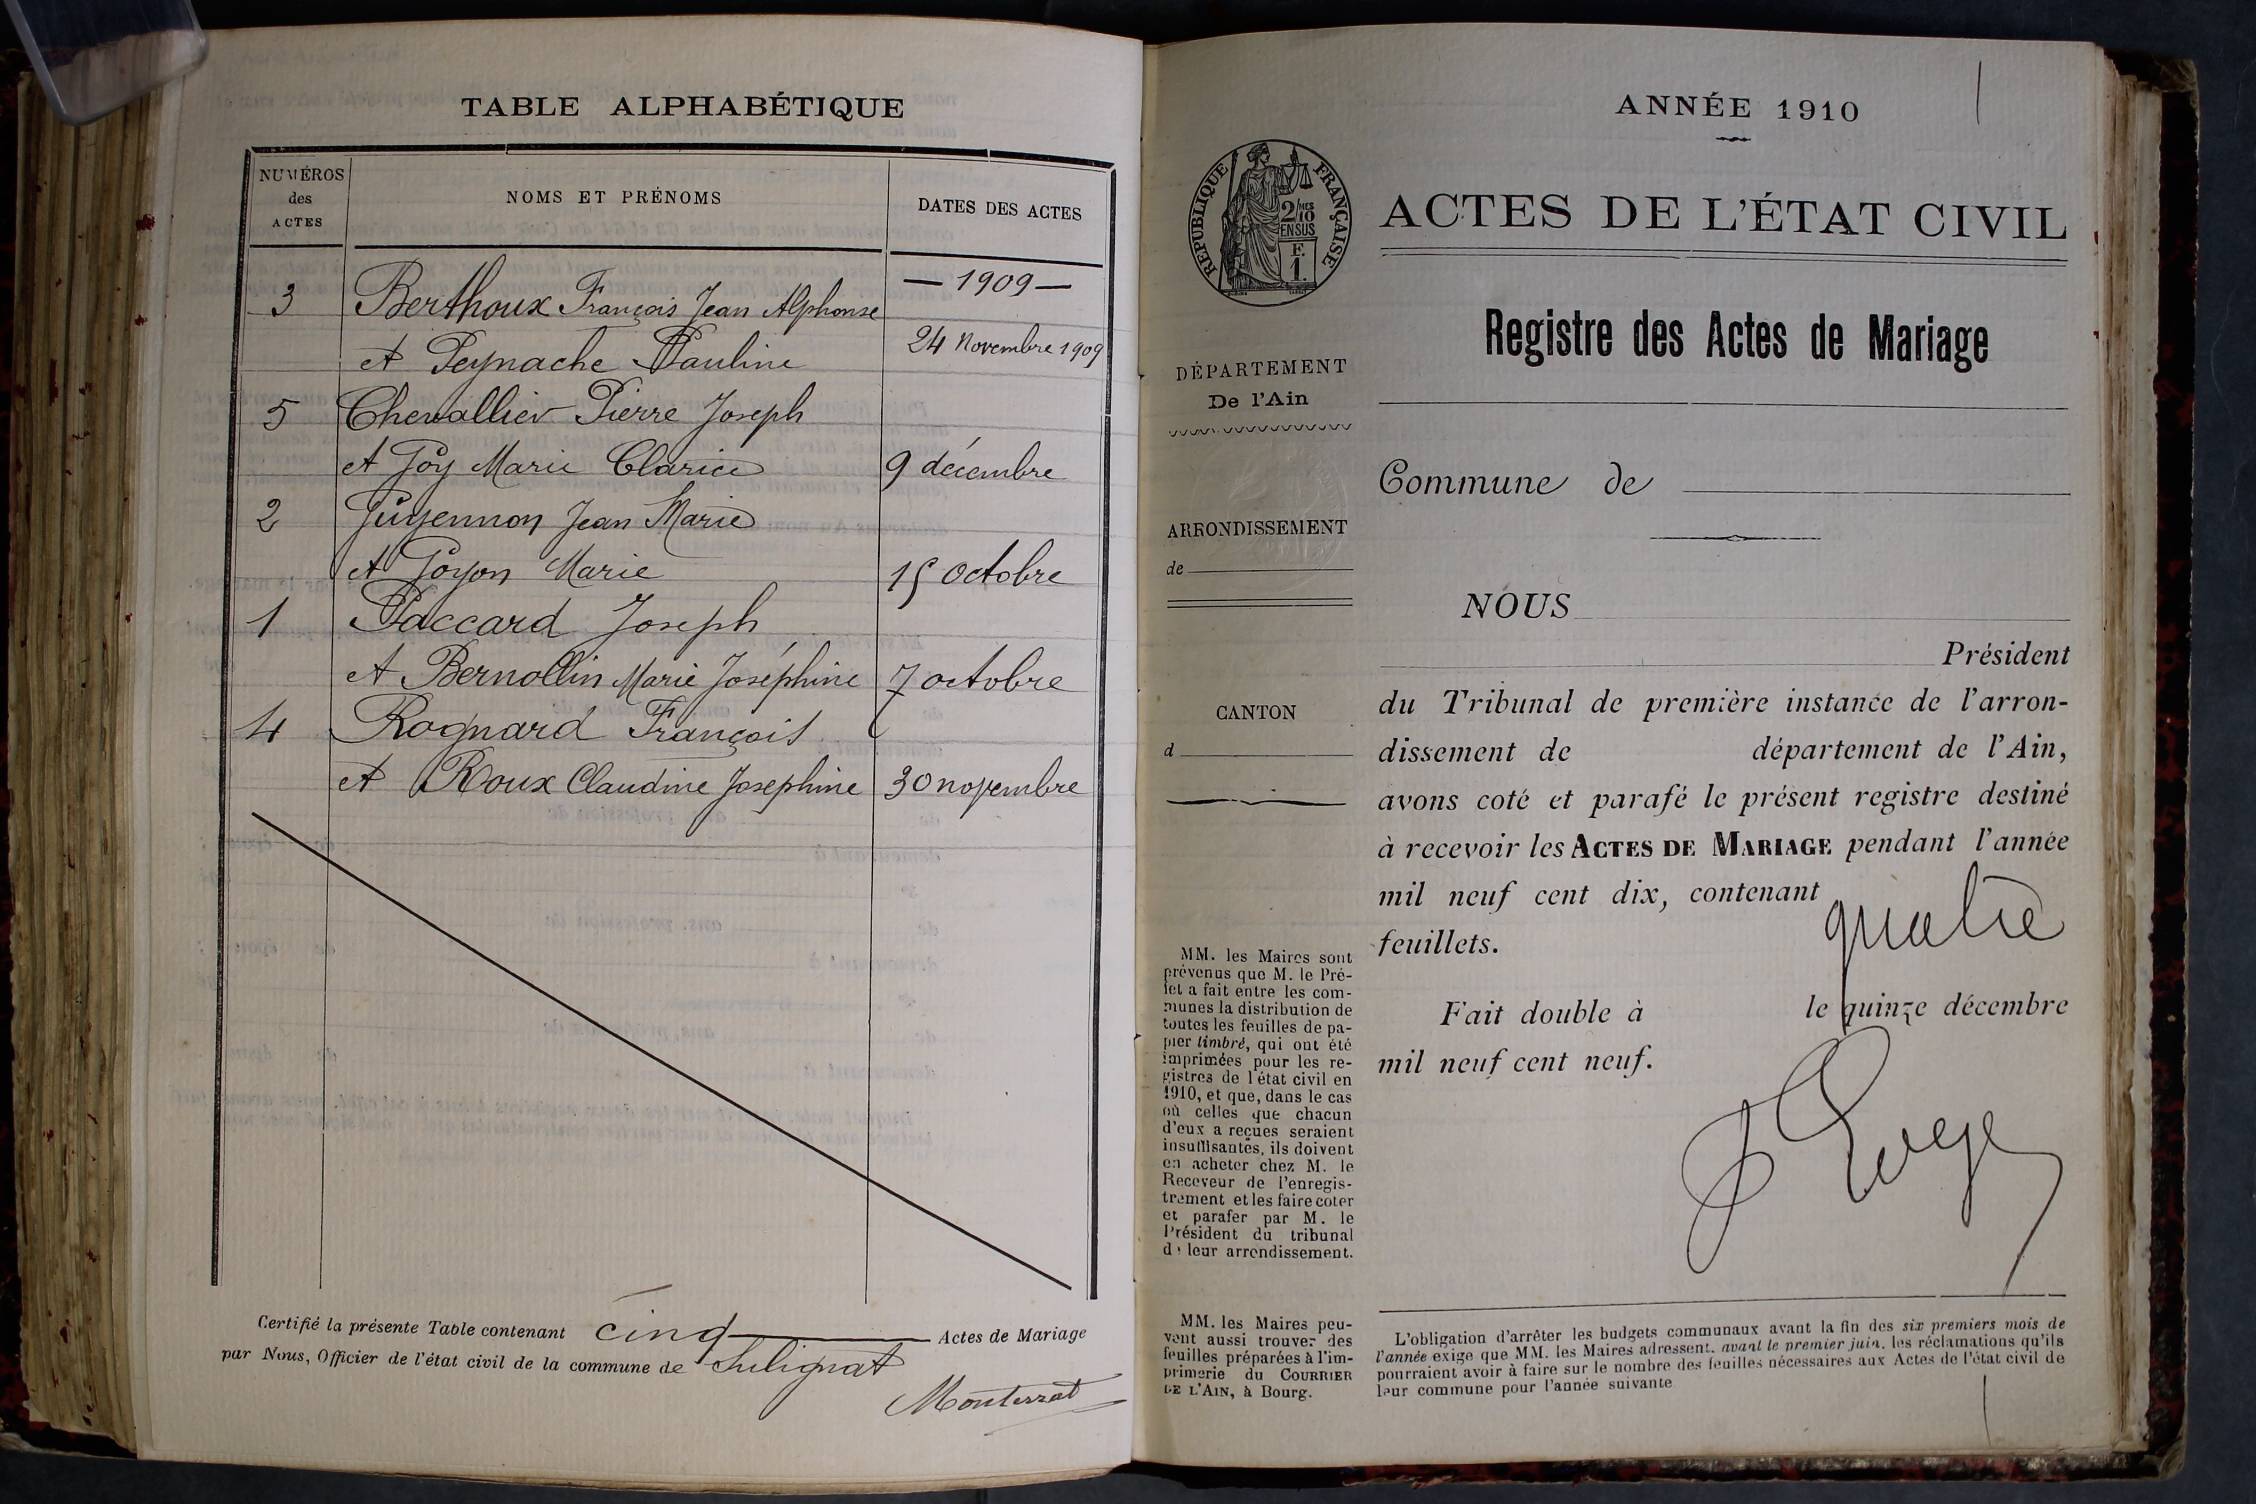 TABLE ALPHABÉTIQUE
NUMÉROS
des
ACTES
NOMS ET PRÉNOMS
DATES DES ACTES
— 1909 —
3 Berthoux François Jean Alphonse
et Peynache Pauline 24 Novembre 1909
5 Chevallier Pierre Joseph
et Joÿ Marie Clarice 9 décembre
2 Guyennon Jean Marie
et Goyon Marie 15 octobre
1 Paccard Joseph
et Bernollin Marie Joséphine 7 octobre
4 Rognard François
et Roux Claudine Josephine 30 novembre
Certifié la présente Table contenant cinq Actes de Mariage
par Nous, Officier de l'état civil de la commune de Sulignat
Monterrat
ANNÉE 1910
RÉPUBLIQUE FRANÇAISE
2/10 MES
EN SUS
F.
1.
ACTES DE L'ÉTAT CIVIL
Registre des Actes de Mariage
DÉPARTEMENT
De l'Ain
ARRONDISSEMENT
de
CANTON
d
MM. les Maires sont
prévenus que M. le Pré-
fet a fait entre les com-
munes la distribution de
toutes les feuilles de pa-
pier timbré, qui ont été
imprimées pour les re-
gistres de l'état civil en
1910, et que, dans le cas
où celles que chacun
d'eux a reçues seraient
insuffisantes, ils doivent
en acheter chez M. le
Receveur de l'enregis-
trement et les faire coter
et parafer par M. le
Président du tribunal
de leur arrondissement.
MM. les Maires peu-
vent aussi trouver des
feuilles préparées à l'im-
primerie du COURRIER
DE L'AIN, à Bourg.
Commune de
NOUS
Président
du Tribunal de première instance de l'arron-
dissement de département de l'Ain,
avons coté et parafé le présent registre destiné
à recevoir les ACTES DE MARIAGE pendant l'année
mil neuf cent dix, contenant quatre
feuillets.
Fait double à le quinze décembre
mil neuf cent neuf.
L'obligation d'arrêter les budgets communaux avant la fin des six premiers mois de
l'année exige que MM. les Maires adressent, avant le premier juin, les réclamations qu'ils
pourraient avoir à faire sur le nombre des feuilles nécessaires aux Actes de l'état civil de
leur commune pour l'année suivante